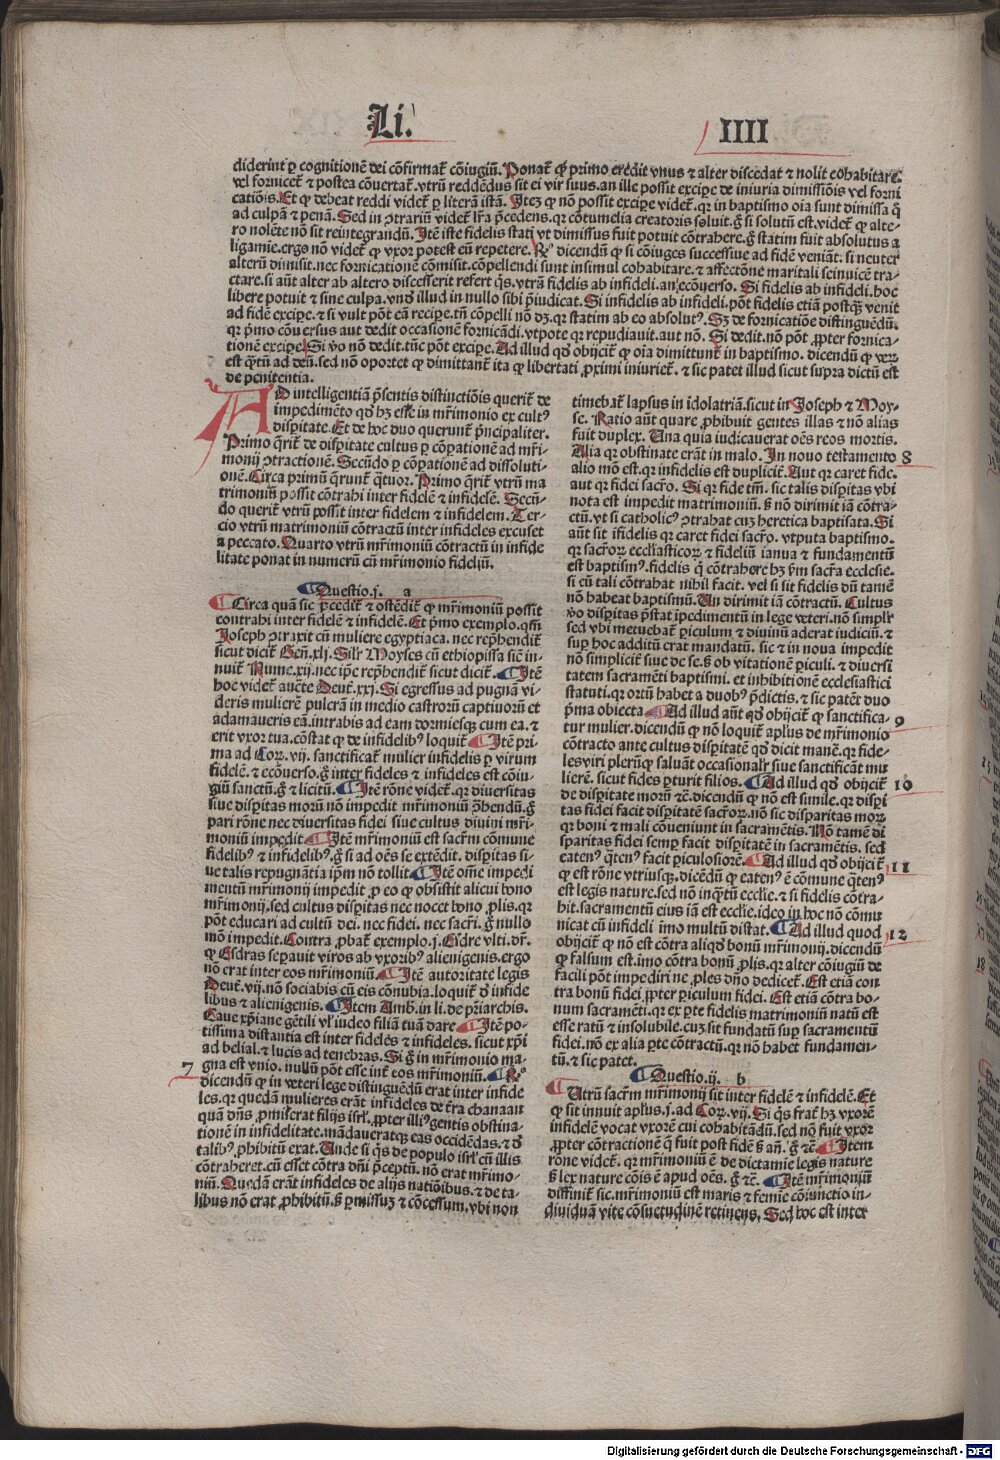 Li.
IIII
diderint ꝑ cognitionē dei cōfirmat᷑ cōiugiū. Ponat᷑ ꝙ primo credit vnus ⁊ alter discedat ⁊ nolit cohabitare.
vel fornicet᷑ ⁊ postea cōuertat᷑. vtrū reddēdus sit ei vir suus. an ille possit excipe de iniuria dimissiōis vel forni
catiōis. Et ꝙ debeat reddi videt᷑ ꝑ literā istā. Itē ꝙ nō possit excipe videt᷑. qꝛ in baptismo oīa sunt dimissa q̄
ad culpā ⁊ penā. Sed in ꝯtrariū videt᷑ lr̄a p̄cedens. qꝛ cōtumelia creatoris soluit. ḡ si solutū est. videt᷑ ꝙ alte-
ro nolēte nō sit reintegrandū. Itē iste fidelis statī vt dimissus fuit potuit cōtrahere. ḡ statim fuit absolutus a
ligamīe. ergo non videt᷑ ꝙ vxor potest eū repetere. Rº dicendū ꝙ si cōiuges successiue ad fidē veniāt. si neuter
alterū dimisit. nec fornicationē cōmisit. cōpellendi sunt insimul cohabitare. ⁊ affectōne maritali seinuicē tra-
ctare. si aūt alter ab altero discesserit refert q̄s. vtrū fidelis ab infideli. an ecōuerso. Si fidelis ab infideli. hoc
libere potuit ⁊ sine culpa. vnd᷑ illud in nullo sibi p̄iudicat. Si infidelis ab infideli. pōt fidelis etiā postq̄ venit
ad fidē excipe. ⁊ si vult pōt eā recipe. tn̄ cōpelli nō dꝫ. qꝛ statim ab eo absolut⁹. Sꝫ de fornicatiōe distinguēdū.
qꝛ p̄mo cōuersus aut dedit occasionē fornicādi. vtpote qꝛ repudiauit. aut nō. Si dedit. nō pōt ꝓpter fornica-
tionē excipe. Si v̊o nō dedit. tūc pōt excipe. Ad illud qd᷑ obijcit᷑ ꝙ oīa dimittunt᷑ in baptismo. dicendū ꝙ verū
est q̄tū ad deū. sed nō oportet ꝙ dimittant᷑ ita ꝙ libertati ꝓximi iniuriet᷑. ⁊ sic patet illud sicut supra dictū est
de penitentia.
AD intelligentiā p̄sentis distinctiōis querit᷑ de
impedimēto qd᷑ hꝫ esse in mr̄imonio ex cult⁹
dispitate. Et de hoc duo querunt᷑ p̄ncipaliter.
Primo q̄rit᷑ de dispitate cultus ꝑ cōpationē ad mr̄i-
monij ꝯtractionē. Secūdo ꝑ cōpationē ad dissoluti-
onē. Circa primū q̄runt᷑ q̄tuor. Primo q̄rit᷑ vtrū ma
trimoniū possit cōtrahi inter fidelē ⁊ infidelē. Secū-
do querit᷑ vtrū possit inter fidelem ⁊ infidelem. Ter-
cio vtrū matrimoniū cōtractū inter infideles excuset
a peccato. Quarto vtrū mr̄imoniū cōtractū in infide
litate ponat in numerū cū mr̄imonio fideliū.
Questio.j. a
Circa quā sic ꝓcedit᷑ ⁊ ostēdit᷑ ꝙ mr̄imoniū possit
contrahi inter fidelē ⁊ infidelē. Et p̄mo exemplo. qm̄
Joseph ꝯtraxit cū muliere egyptiaca. nec rep̄hendit᷑
sicut dicit᷑ Gen̄. xlj. Silr̄ Moyses cū ethiopissa siē in-
nuit᷑ Nume. xij. nec ip̄e rep̄hendit᷑ sicut dicit᷑. Itē
hoc videt᷑ aucte Deut᷑. xxj. Si egressus ad pugnā vi-
deris mulierē pulcrā in medio castrorū captiuorū et
adamaueris eā. intrabis ad eam dormiesqꝫ cum ea. ⁊
erit vxor tua. cōstat ꝙ de infidelib⁹ loquit᷑ Itē pri-
ma ad Cor. vij. sanctificat᷑ mulier infidelis ꝑ virum
fidelē. ⁊ ecōuerso. ḡ inter fideles ⁊ infideles est cōiu-
giū sanctū. ḡ ⁊ licitū. Itē rōne videt᷑. qꝛ diuersitas
siue dispitas morū nō impedit mr̄imoniū ꝯhendū. ḡ
pari rōne nec diuersitas fidei siue cultus diuini mr̄i-
moniū impedit Itē mr̄imoniū est sacr̄m cōmune
fidelib⁹ ⁊ infidelib⁹. ḡ si ad oēs se extēdit. dispitas si-
ue talis repugnātia ip̄m nō tollit. Itē om̄e impedi
mentū mr̄imonij impedit ꝓ eo ꝙ obsistit alicui bono
mr̄imonij. sed cultus dispitas nec nocet bono ꝓlis. qꝛ
pōt educari ad cultū dei. nec fidei. nec sacr̄i. ḡ nullo
mō impedit. Contra ꝓbat᷑ exemplo. j. Esdre vlti. dr̄.
ꝙ Esdras sepauit viros ab vxorib⁹ alienigenis. ergo
nō erat inter eos mr̄imoniū. Itē autoritate legis
Deut᷑. vij. nō sociabis cū eis cōnubia. loquit᷑ d̄ infide
libus ⁊ alienigenis. Item Amb. in li. de pr̄iarchis.
Caue xp̄iane gētili vl̓ iudeo filiā tuā dare Itē po-
tissima distantia est inter fideles ⁊ infideles. sicut xp̄i
ad belial. ⁊ lucis ad tenebras. Si ḡ in mr̄imonio ma-
7 gna est vnio. nullū pōt esse int᷑ eos mr̄imoniū. Rº
dicendū ꝙ in veteri lege distinguēdū erat inter infide
les. qꝛ quedā mulieres erāt infideles de tr̄a chanaan
quā dn̄s ꝓmiserat filijs isrl̓. ꝓpter illi⁹ gentis obstina-
tionē in infidelitate. mādaueratqꝫ eas occidēdas. ⁊ d̄
talib⁹ ꝓhibitū erat. Unde si q̄s de populo isrl̓ cū illis
cōtraheret. cū esset cōtra dn̄i p̄ceptū. nō erat mr̄imo-
niū. Quedā erāt infideles de alijs natiōibus. ⁊ de ta-
libus nō erat ꝓhibitū. sꝫ ꝑmissuꝫ ⁊ cōcessum. vbi non
timebat᷑ lapsus in idolatriā. sicut in Joseph ⁊ Moy-
se. Ratio aūt quare ꝓhibuit gentes illas ⁊ nō alias
fuit duplex. Una quia iudicauerat oēs reos mortis.
Alia qꝛ obstinate erāt in malo. In nouo testamento 8
alio mō est. qꝛ infidelis est duplicit᷑. Aut qꝛ caret fide.
aut qꝛ fidei sacr̄o. Si qꝛ fide tm̄. sic talis dispitas vbi
nota est impedit matrimoniū. sꝫ nō dirimit iā cōtra-
ctū. vt si catholic⁹ ꝯtrahat cuꝫ heretica baptisata. Si
aūt sit īfidelis qꝛ caret fidei sacr̄o. vtputa baptismo.
qꝛ sacroꝝ ecclīasticoꝝ ⁊ fideliū ianua ⁊ fundamentū
est baptism⁹. fidelis q̄ cōtrahere hꝫ ꝑm sacr̄a ecclesie.
si cū tali cōtrahat nihil facit. vel si sit fidelis dū tamē
nō habeat baptismū. Un̄ dirimit iā cōtractū. Cultus
v̊o dispitas p̄stat īpedimentū in lege veteri. nō simplr̄
sed vbi metuebat᷑ ꝑiculum ⁊ diuinū aderat iudiciū. ⁊
sup hoc additū erat mandatū. sic ⁊ in noua impedit
nō simplicit᷑ siue de se. sꝫ ob vitationē ꝑiculi. ⁊ diuersi
tatem sacramēti baptismi. et inhibitionē ecclesiastici
statuti. qꝛ ortū habet a duob⁹ p̄dictis. ⁊ sic patēt duo
p̄ma obiecta Ad illud aūt qd᷑ obijcit᷑ ꝙ sanctifica- 9
tur mulier. dicendū ꝙ nō loquit᷑ apl̓us de mr̄imonio
cōtracto ante cultus dispitatē qd᷑ dicit manē. qꝛ fide-
les viri plerūqꝫ saluāt occasionalr̄ siue sanctificāt mu
lierē. sicut fides ꝑturit filios. Ad illud qd᷑ obijcit᷑ 10
de dispitate morū ⁊c̄. dicendū ꝙ nō est simile. qꝛ dispi
tas fidei facit dispitatē sacroꝝ. nō sic disparitas moꝝ
qꝛ boni ⁊ mali cōueniunt in sacramētis. Nō tamē di
sparitas fidei semp facit dispitatē in sacramētis. sed
eaten⁹ q̄ten⁹ facit ꝑiculosiorē. Ad illud qd᷑ obijcit᷑ 11
ꝙ est rōne vtriusqꝫ. dicēdū ꝙ eaten⁹ ē cōmune q̄ten⁹
est legis nature. sed nō inq̄tū eccl̓ie. ⁊ si fidelis cōtra-
hit. sacramentū eius iā est eccl̓ie. ideo in hoc nō cōmu
nicat cū infideli imo multū distat. Ad illud quod 12
obijcit᷑ ꝙ nō est cōtra aliqd᷑ bonū mr̄imonij. dicendū
ꝙ falsum est. imo cōtra bonū ꝓlis. qꝛ alter cōiugiū de
facili pōt impediri ne ꝓles dn̄o dedicet᷑. Est etiā con
tra bonū fidei ꝓpter ꝑiculum fidei. Est etiā cōtra bo-
num sacramēti. qꝛ ex ꝑte fidelis matrimoniū natū est
esse ratū ⁊ insolubile. cuꝫ sit fundatū sup sacramentū
fidei. nō ex alia ꝑte cōtractū. qꝛ nō habet fundamen-
tū. ⁊ sic patet.
Questio.ij. b
Utrū sacr̄m mr̄imonij sit inter fidelē ⁊ infidelē. Et
ꝙ sit innuit apl̓us. j. ad Cor. vij. Si q̄s frat᷑ hꝫ vxorē
infidelē vocat vxorē cui cohabitādū. sed nō fuit vxor
ꝓpter cōtractionē q̄ fuit post fidē sꝫ an̄. ḡ ⁊c̄. Item
rōne videt᷑. qꝛ mr̄imoniū ē de dictamīe legis nature
sꝫ lex nature cōis ē apud oēs. ḡ ⁊c̄. Itē mr̄imoniū
diffinit᷑ sic. mr̄imoniū est maris ⁊ femīe cōiunctio in-
diuiduā vite cōsuetudinē retinens. Sed hoc est inter
Digitalisierung gefördert durch die Deutsche Forschungsgemeinschaft - DFG